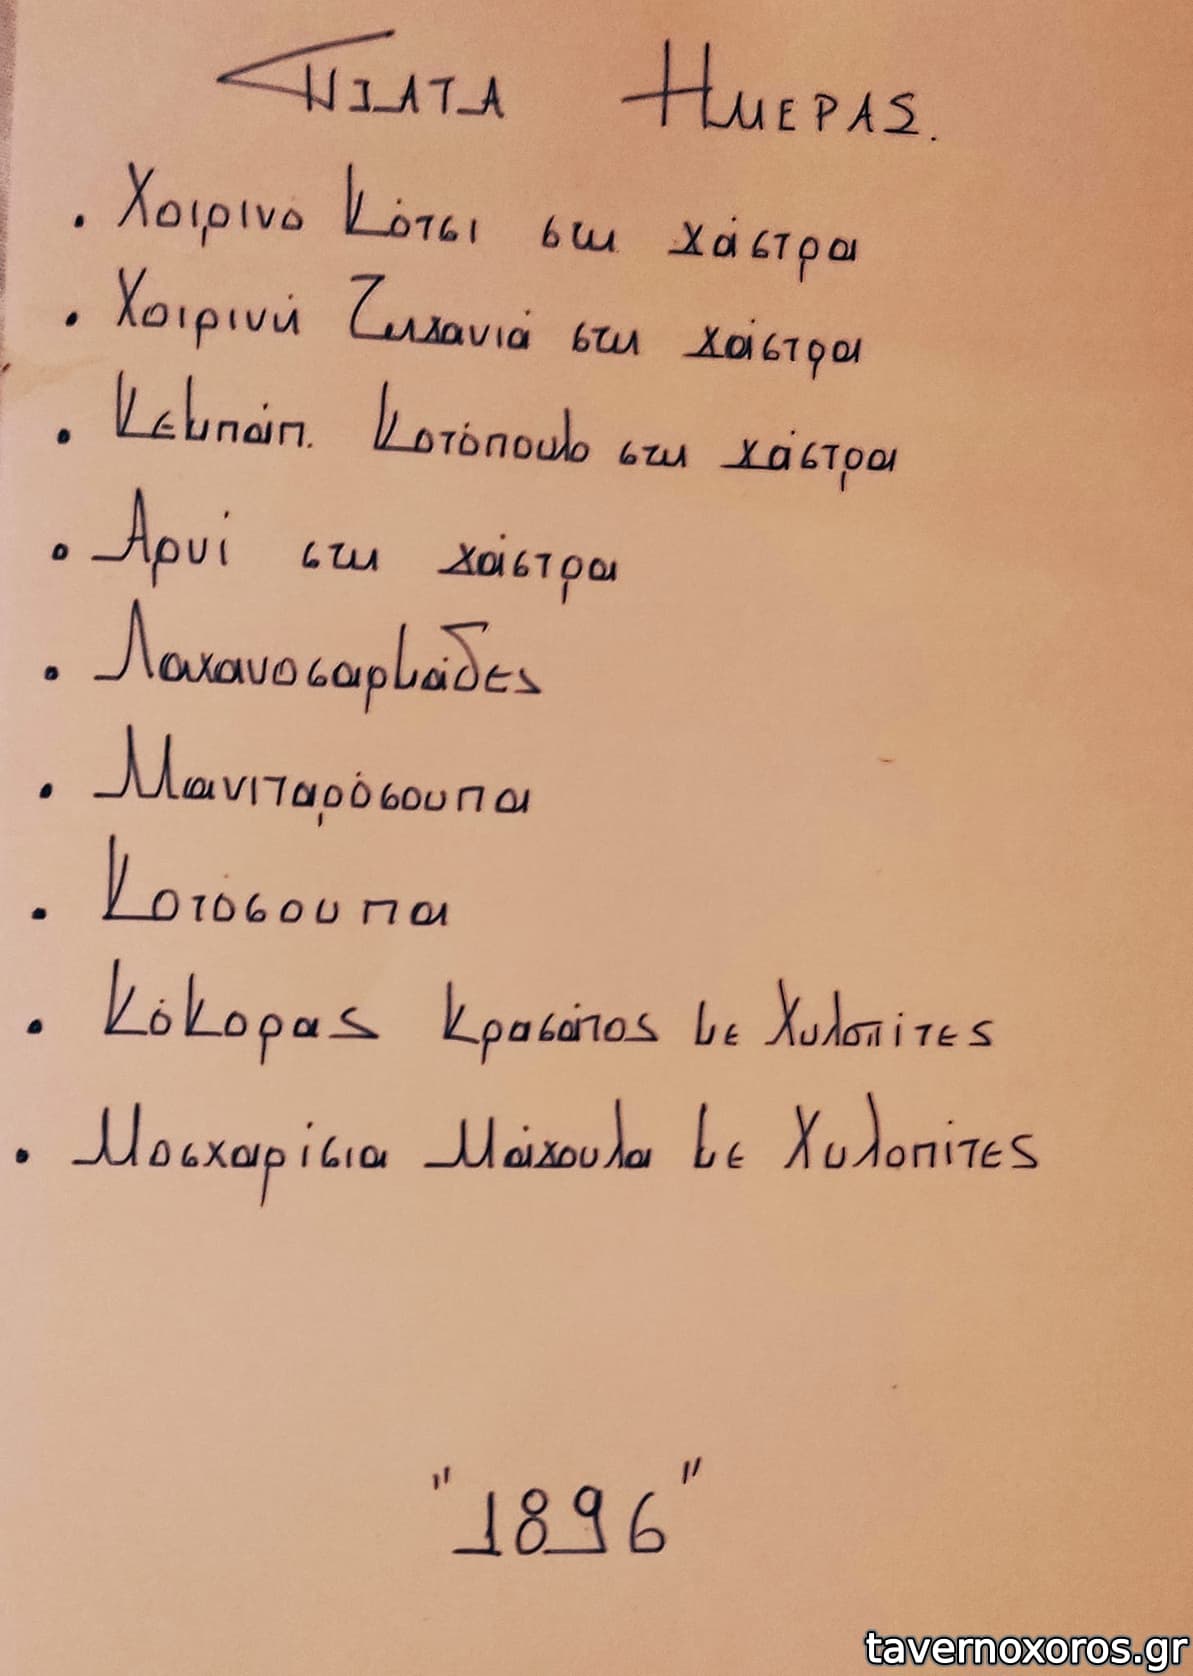 Πιάτα Ημέρας.
• Χοιρινό Κότσι στη χάστρα
• Χοιρινή Τηγανιά στη χάστρα
• Κεμπάπ Κοτόπουλο στη χάστρα
• Αρνί στη χάστρα
• Λαχανοσαρμάδες
• Μανιταρόσουπα
• Κοτόσουπα
• Κόκορας Κρασάτος με Χυλοπίτες
• Μοσχαρίσια Μάγουλα με Χυλοπίτες
"1896"
tavernoxoros.gr